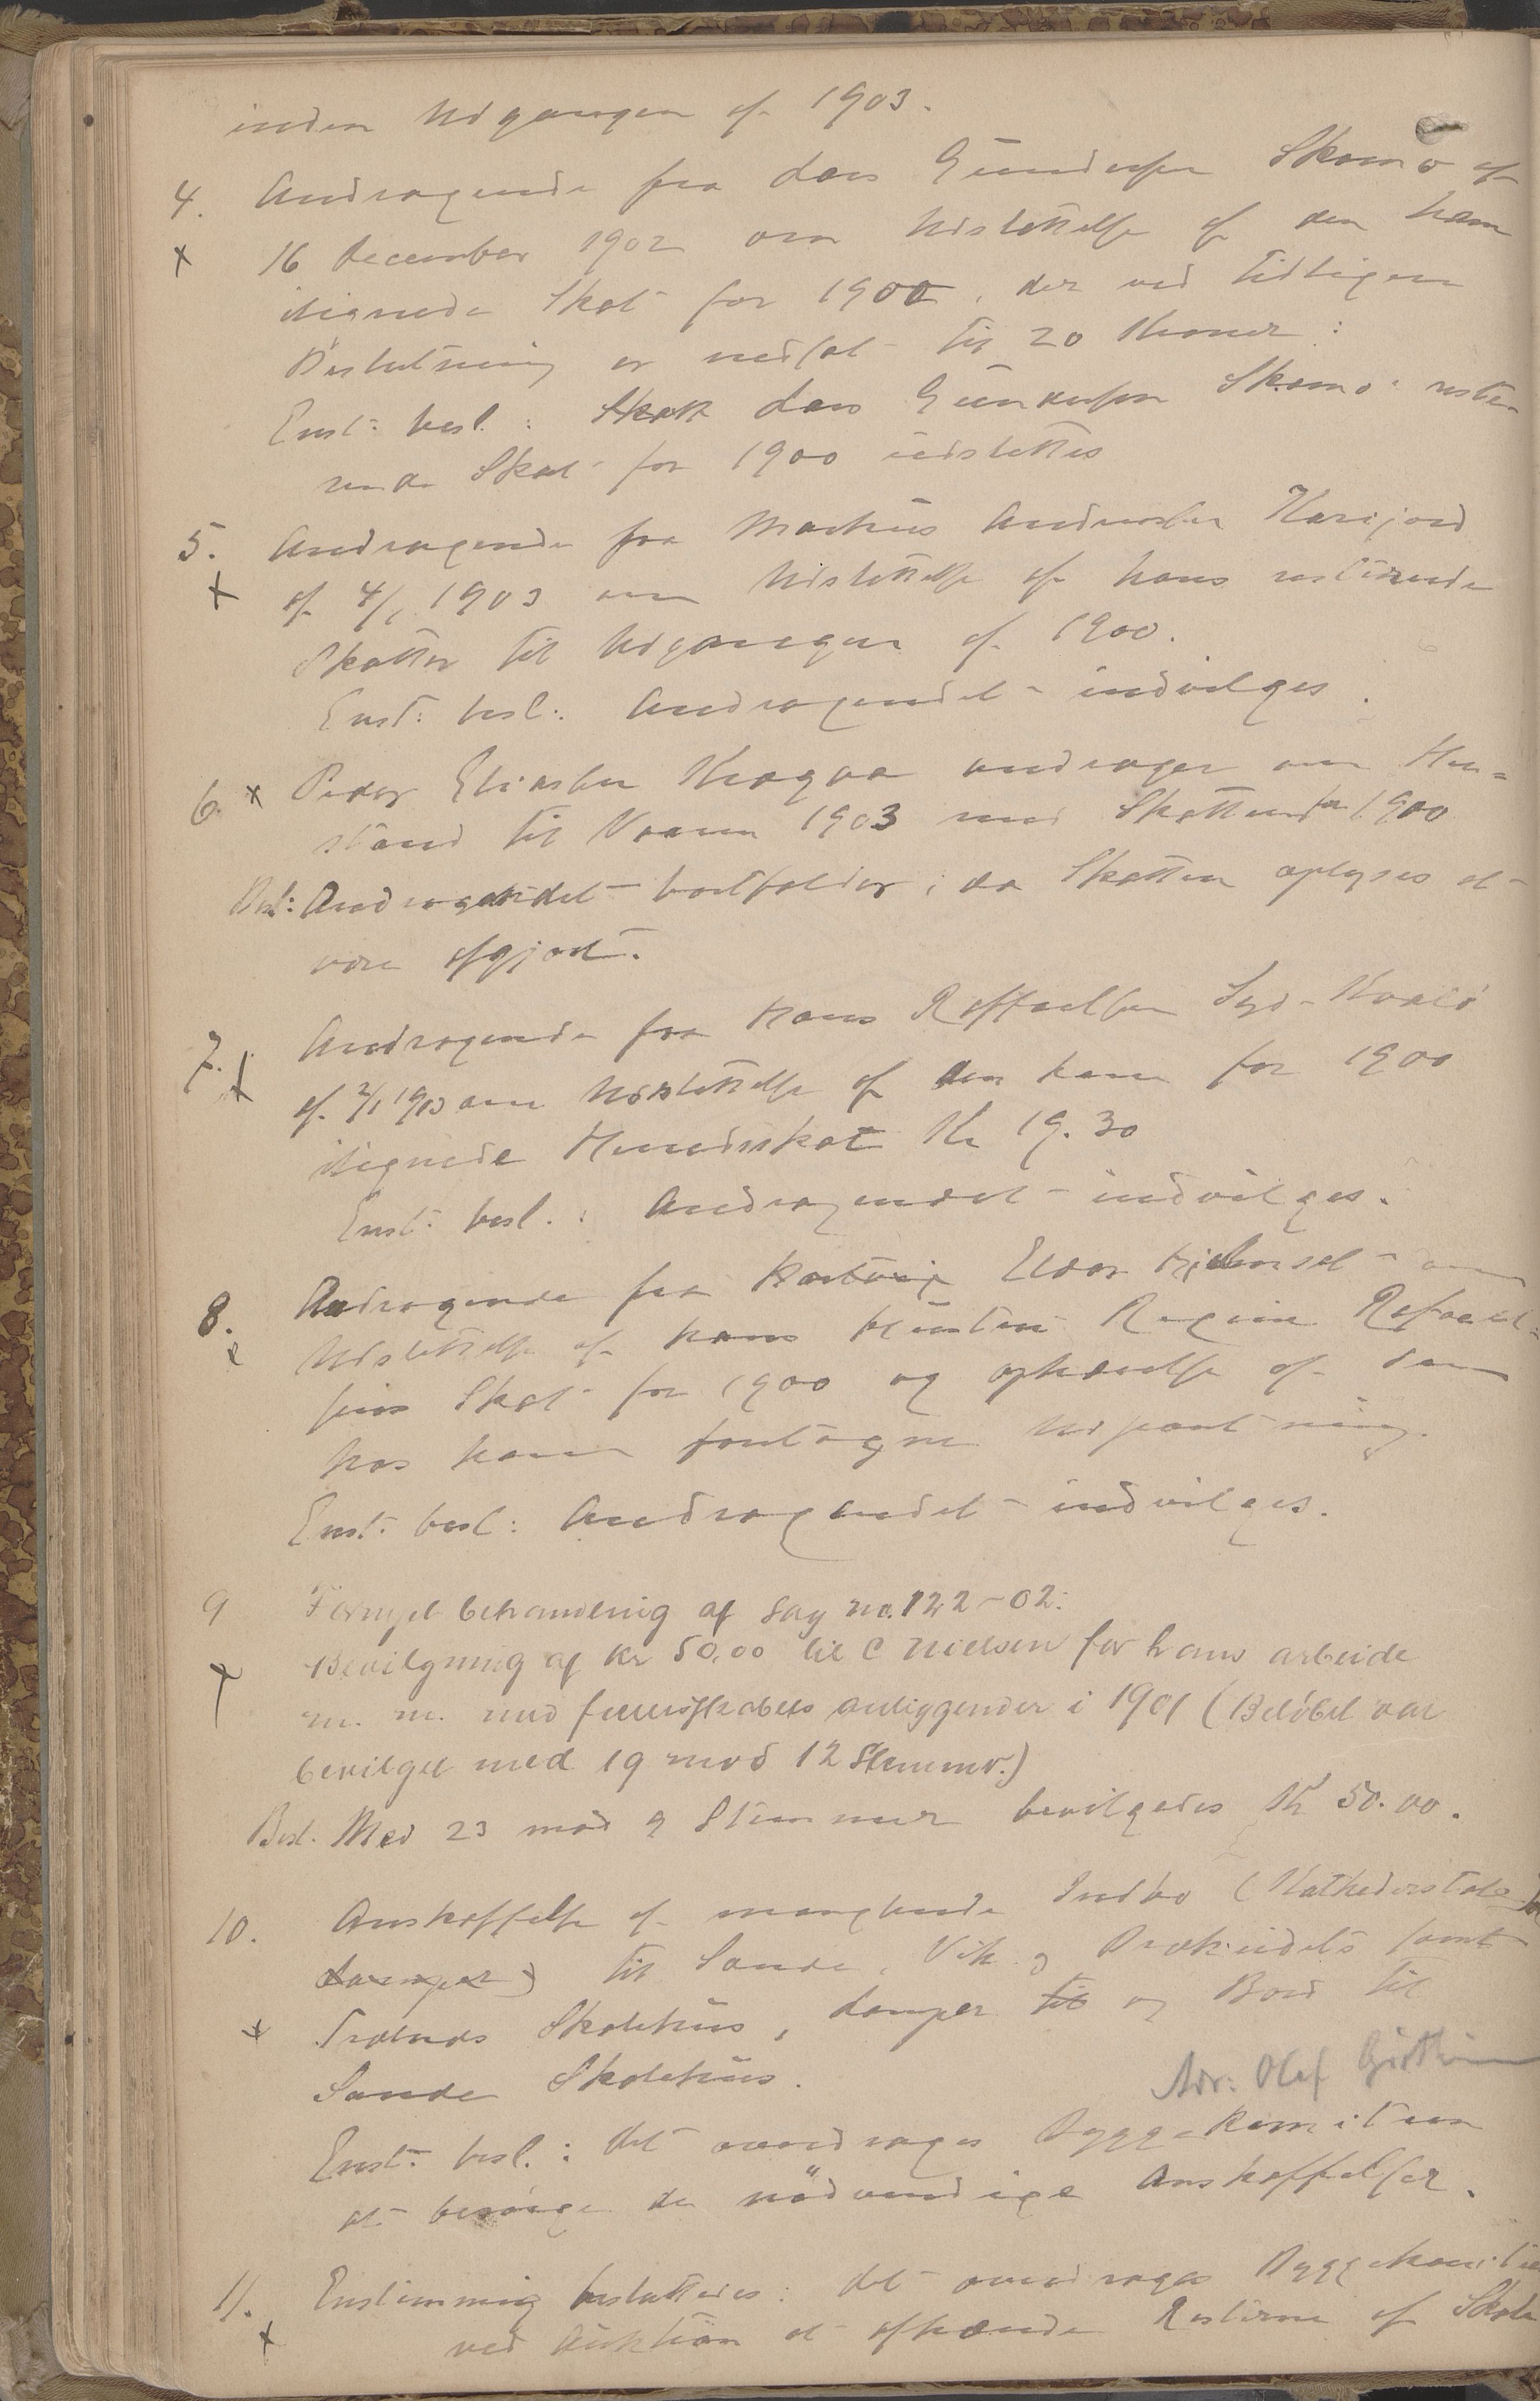 inden Udgangen af 1903.
4. Andragende fra Lars Gundersen Skomo af
16 December 1902 om Udslettelse af den ham
ilignede Skat for 1900, der ved tidligere
Beslutning er nedsat til 20 Kroner:
Enst: besl.: Lars Gundersen Skomo's reste-
rende Skat for 1900 udslettes
5. Andragende fra Markus Andersen Horsfjord
af 4/1 1903 om Udslettelse af hans resterende
Skatter til Udgangen af 1900.
Enst: besl: Andragendet indvilges.
6. Peder Eliassen Kragøa andrager om Hen-
stand til Vaaren 1903 med Skatten for 1900
Besl: Andragendet bortfalder, da Skatten oplyses at
være afgjort.
7. Andragende fra Hans Raffaelsen Syd-Kvalø
af 2/1 1903 om Udslettelse af den ham for 1900
ilignede Hundeskat Kr 19.30
Enst: besl.: Andragendet indvilges.
8. Andragende fra Hartvig om
Udslettelse af hans Hustru Regine Rafael-
sens Skat for 1900 og ophævelse af den
hos ham foretagne Udpantning.
Enst: besl: Andragendet indvilges.
9 Fornyet behandling af Sag no. 122-02:
Bevilgning af Kr 50,00 til C Nielsen for hans arbeide
m. m. med anliggender i 1901 (Beløbet var
bevilget med 19 mod 12 Stemmer.)
Besl. Med 23 mod 9 Stemmer bevilgedes Kr 50.00.
10. Anskaffelse af manglende Indbo (Kathederstole
Lamper) til Sande, Vik og samt
Skolehus, Lamper til og Bord til
Sande Skolehus.
Adr: Olaf
Enst: besl.: Det overdrages Byggekomiteen
at besørge de nødvendige Anskaffelser.
11. Enstemmig besluttedes: Det overdrages Byggekomiteen
ved Auktion at afhænde Resterne af Skole